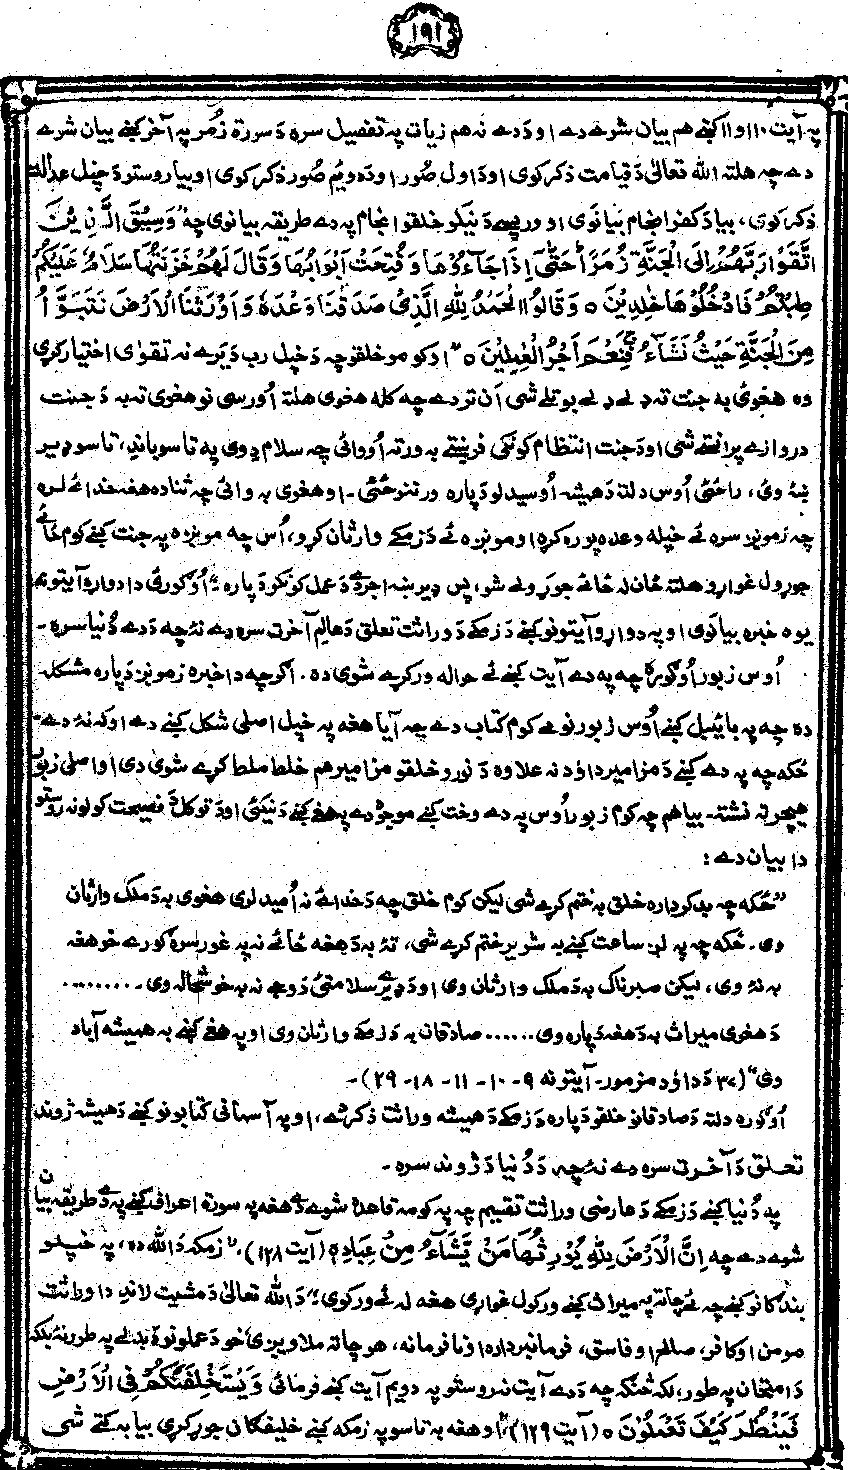 ۱۹۱
په آیت ۱۰ او ۱۱ کښے هم بیان شوے دے او ددے نه هم زیات په تفصیل سره دَ سورة زُمر په آخر کښے بیان شوے
دے چه هلته الله تعالیٰ دَ قیامت ذکر کوی او دَ اول صُور او دَ دویم صُور ذکر کوی او بیا روستو دَ خپل عدالت
ذکر کوی، بیا دَ کفر انجام بیانوی او ورپسے دَ نیکو خلقو انجام په دے طریقه بیانوی چه وَسِيْقَ الَّذِيْنَ
اتَّقَوْا رَبَّهُمْ اِلَى الْجَنَّةِ زُمَرًا حَتّٰى اِذَا جَآءُوْهَا وَفُتِحَتْ اَبْوَابُهَا وَقَالَ لَهُمْ خَزَنَتُهَا سَلٰمٌ عَلَيْكُمْ
طِبْتُمْ فَادْخُلُوْهَا خٰلِدِيْنَ ٥ وَقَالُوا الْحَمْدُ لِلّٰهِ الَّذِىْ صَدَقَنَا وَعْدَهٗ وَاَوْرَثَنَا الْاَرْضَ نَتَبَوَّاُ
مِنَ الْجَنَّةِ حَيْثُ نَشَآءُ فَنِعْمَ اَجْرُ الْعٰمِلِيْنَ ٥" او کومو خلقو چه دَ خپل رب دَ یرے نه تقویٰ اختیار کړی
وه هغوئ به جنت ته ډلے ډلے بوتلے شی اَن تردے چه کله هغوی هلته اُورسی نو هغوی ته به دَ جنت
دروازے پرانستے شی او دَ جنت انتظام کونکی فرښتے به ورته اُووائی چه سلام دِ وی په تاسو باندِ، تاسو ډیر
ښهٔ وئ، راځئ اُوس دلته دَ همیشه اُوسیدلو دَ پاره ورننوځئ - او هغوی به وائی چه ثنا ده هغه خدائے لره
چه زمونږه سره ئے خپله وعده پوره کړه او مونږه ئے دَ زمکے وارثان کړو، اُس چه مونږه په جنت کښے کوم ځائے
جوړول غواړو هلته ځان له ځائے جوړولے شو، پس ډیر ښه اجر دے دَ عمل کونکو دَ پاره" اُوګورئ دا دواړو آیتونه
یوه خبره بیانوی او په دواړو آیتونو کښے دَ زمکے دَ وراثت تعلق دَ عالمِ آخرت سره دے نهٔ چه دَدے دُنیا سره -
اُوس زبور اُوګوره چه په دے آیت کښے ئے حواله ورکړے شوی ده. اګرچه دا خبره زمونږ دَ پاره مشکله
ده چه په بائیبل کښے اُوس زبور نومے کوم کتاب دے چه آیا هغه په خپل اصلی شکل کښے دے او که نهٔ دے-
ځکه چه په دے کښے دَ مزامیر داوٗد نه علاوه دَ نورو خلقو مزامیر هم خلط ملط کړے شوی دی او اصلی زبور
هیچرته نشته- بیا هم چه کوم زبور اُوس په دے وخت کښے موجود دے په هغے کښے دَ نیکئ او دَ توکل دَ نصیحت کولو نه روستو
دا بیان دے:
"ځکه چه بدکرداره خلق به ختم کړے شی لیکن کوم خلق چه دَ خدائے نه اُمید لری هغوی به دَ ملک وارثان
وی. ځکه چه په لږ ساعت کښے به شریر ختم کړے شی، تهٔ به دَ هغه ځائے ته په غور سره ګورے خو هغه
به نهٔ وی، لیکن صبرناک به دَ ملک وارثان وی او دَ ډیرے سلامتئ دَ وجے نه به خوشحاله وی - ........
دَ هغوی میراث به دَ همیشه دَ پاره وی...... صادقان به دَ زمکے وارثان وی او په هغے کښے به همیشه آباد
وی" (۳۷ دَ داوٗد مزمور- آیتونه ۹- ۱۰- ۱۱- ۱۸- ۲۹)-
اُوګوره دلته دَ صادقانو خلقو دَ پاره دَ زمکے دَ همیشه وراثت ذکر دے، او په آسمانی کتابونو کښے دَ همیشه ژوند
تعلق دَ آخرت سره دے نهٔ چه دَ دُنیا دَ ژوند سره -
په دُنیا کښے دَ زمکے دَ عارضی وراثت تقسیم چه په کومه قاعده شوے دے هغه په سورة اعراف کښے په دے طریقه بیان
شوے دے چه اِنَّ الْاَرْضَ لِلّٰهِ يُوْرِثُهَا مَنْ يَّشَآءُ مِنْ عِبَادِهٖ (آیت ۱۲۸). "زمکه دَ الله ده، په خپلو
بندګانو کښے چه ئے چاته په میراث کښے ورکول غواړی هغه له ئے ورکوی" دَ الله تعالیٰ دَ مشیت لاندِ دا وراثت
مومن او کافر، صالح او فاسق، فرمانبرداره او نافرمانه، هر چاته ملاویږی خو دَ عملونو دَ بدلے په طور نهٔ بلکه
دَ امتحان په طور، لکه څنګه چه دَدے آیت نه روستو په دویم آیت کښے فرمائی وَيَسْتَخْلِفَكُمْ فِى الْاَرْضِ
فَيَنْظُرَ كَيْفَ تَعْمَلُوْنَ ٥ (آیت ۱۲۹)" او هغه به تاسو په زمکه کښے خلیفګان جوړ کړی بیا به کتے شی